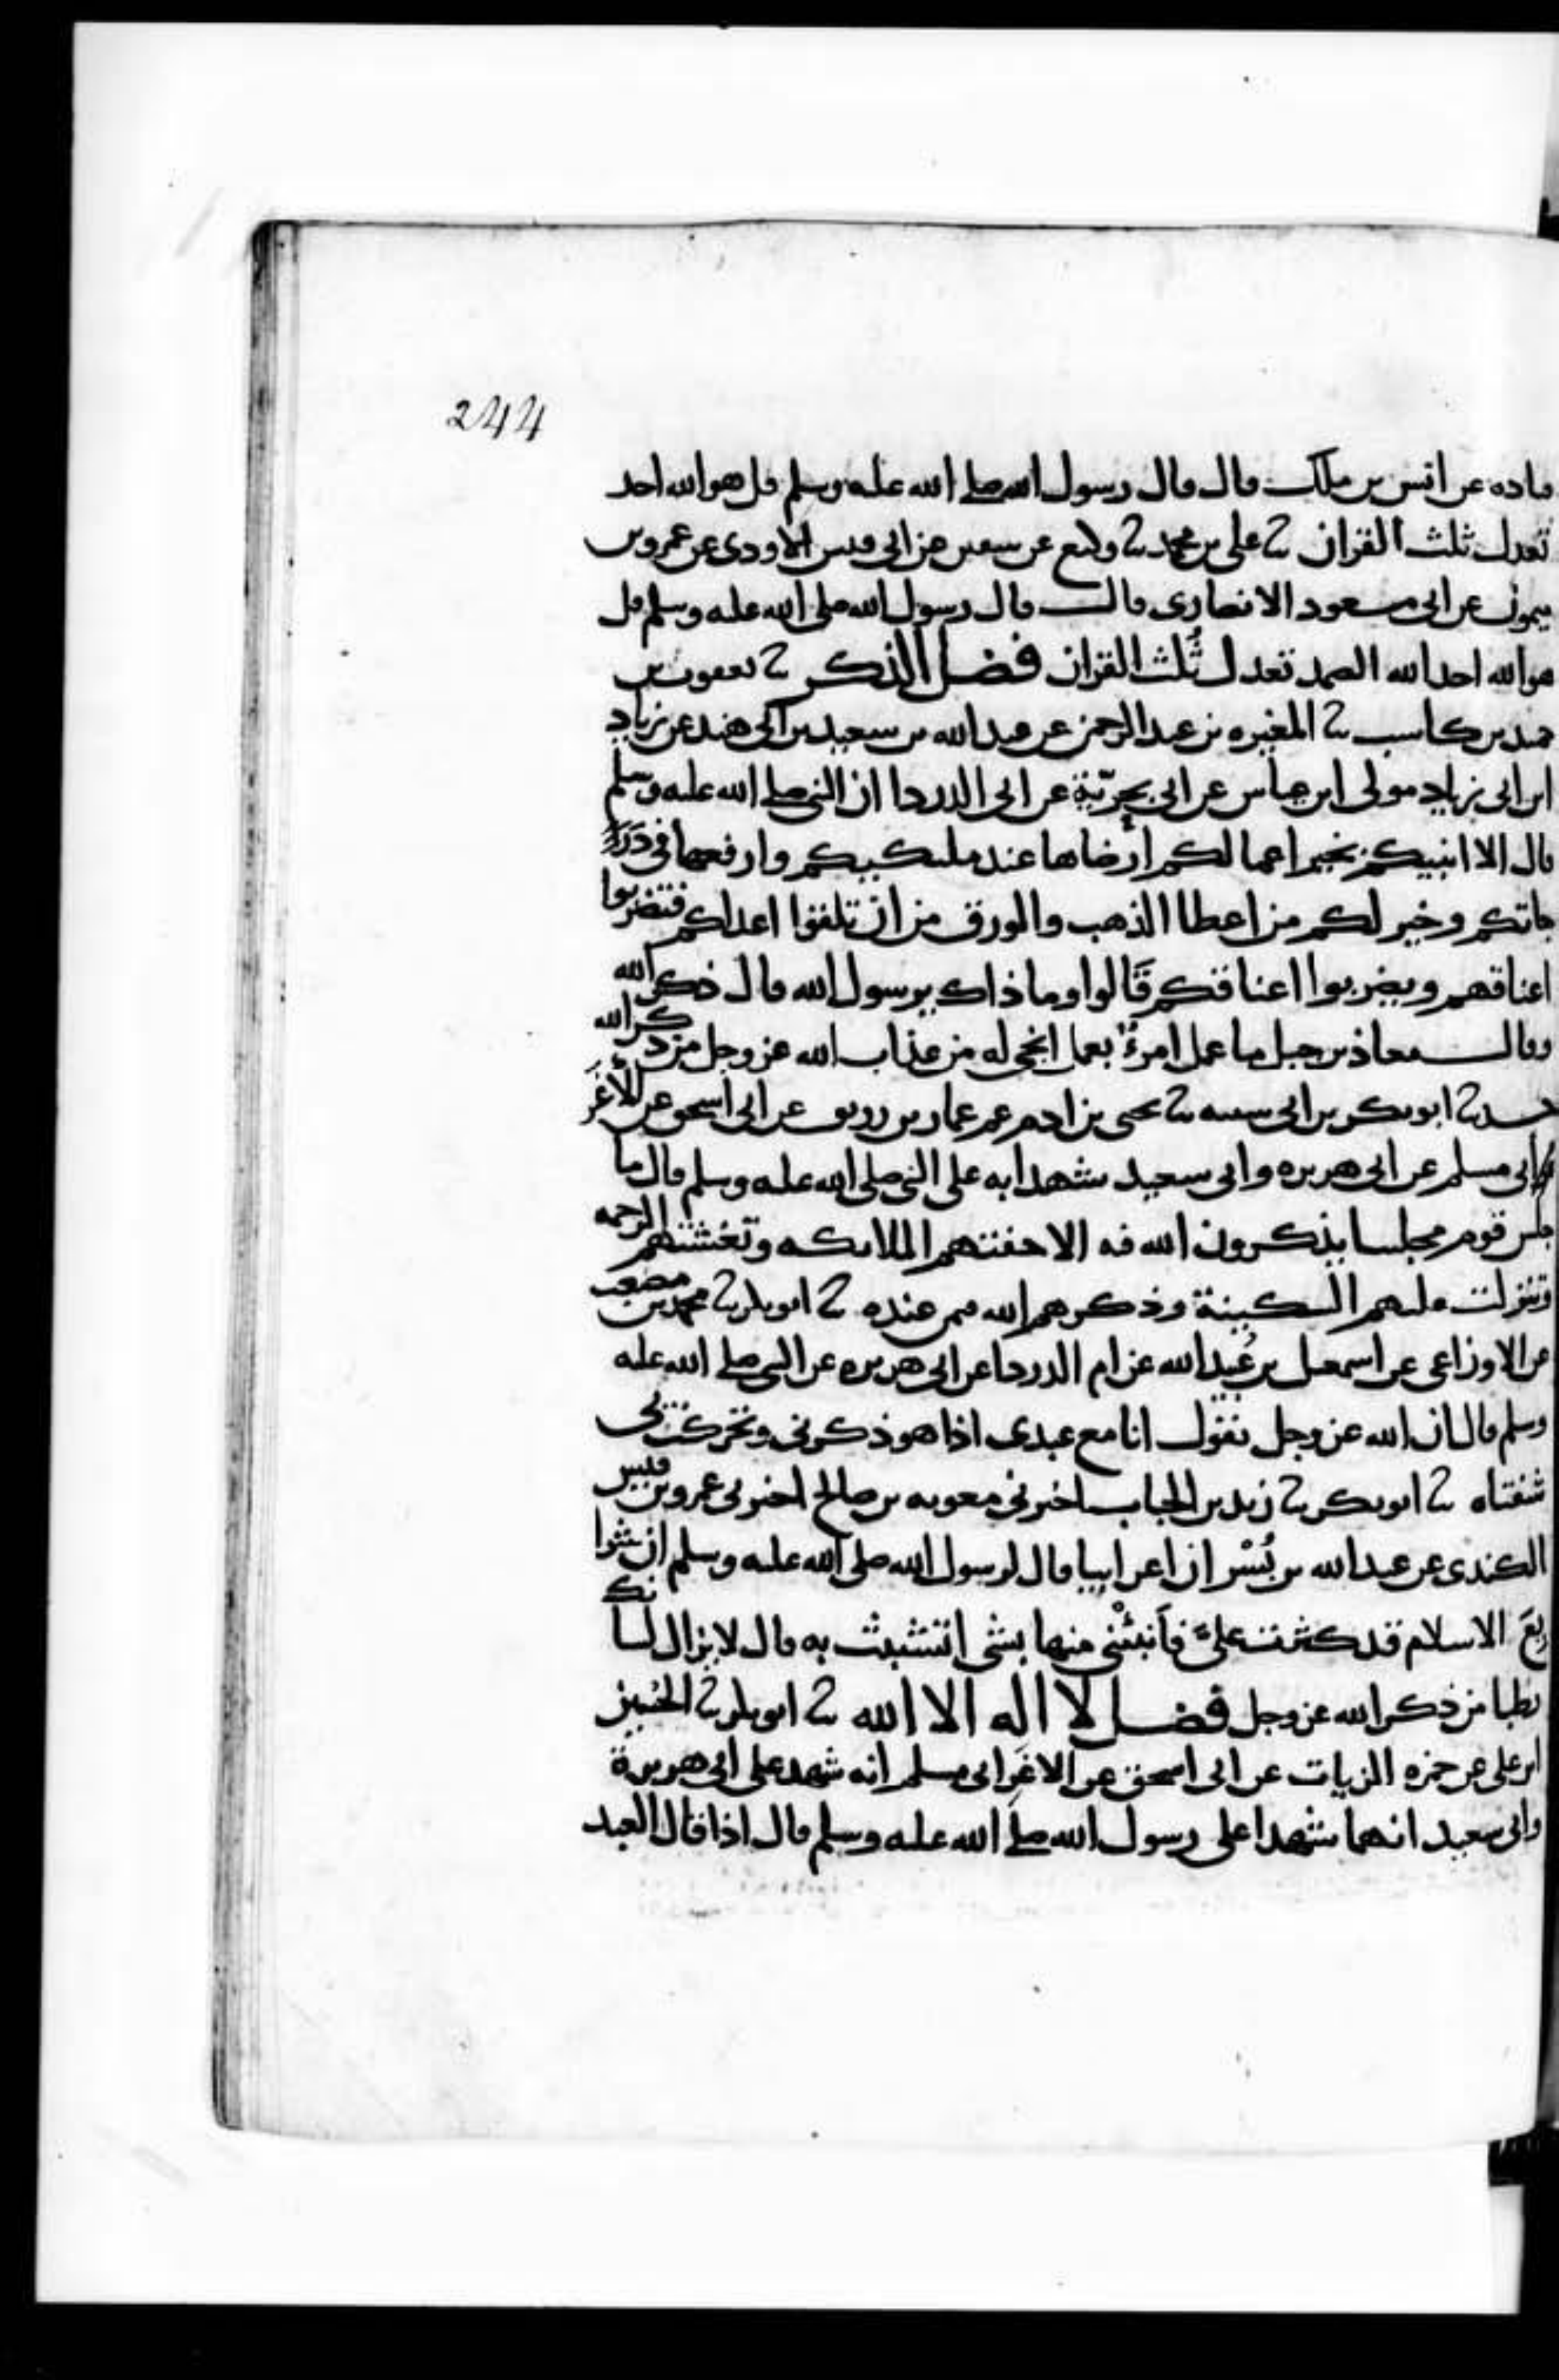 244
قتاده عن انس بن ملك قال قال رسول الله صلى الله عليه وسلم قل هو الله احد
تعدل ثلث القران ثنا على بن محمد ثنا وكيع عن سفين عن ابى قيس الاودى عن عمرو بن
ميمون عن ابى مسعود الانصارى قال قال رسول الله صلى الله عليه وسلم قل
هو الله احد الله الصمد تعدل ثُلث القران فضل الذكر ثنا يعقوب بن
حميد بن كاسب ثنا المغيره بن عبد الرحمن عن عبد الله بن سعيد بن ابى هند عن زياد
ابن ابى زياد مولى ابن عياش عن ابى بحريّة عن ابى الدردا ان النبى صلى الله عليه وسلم
قال الا انبيكم بخير اعمالكم ارضاها عند مليككم وارفعها فى دَرَ
جاتكم وخير لكم من اعطا الذهب والورق من ان تلقوا اعداكم فتضربوا
اعناقهم ويضربوا اعناقكم قَالوا وما ذاك يرسول الله قال ذكر الله
وقال معاذ بن جبل ما عمل امرءٌ بعمل انجى له من عذاب الله عز وجل من ذكر الله
حدثنا ابو بكر بن ابى شيبه ثنا يحيى بن ادم عن عمار بن رزيق عن ابى اسحق عن الاَغَر
ابى مسلم عن ابى هريره وابى سعيد شهدا به على النبى صلى الله عليه وسلم قال ما
جلس قوم مجلسا يذكرون الله فيه الا حفتهم الملايكه وتغشتهم الرحمه
وتنزلت عليهم السكينة وذكرهم الله فيمن عنده ثنا ابو بكر ثنا محمد بن مصعب
عن الاوزاعى عن اسمعيل بن عُبيد الله عن ام الدردا عن ابى هريره عن النبى صلى الله عليه
وسلم قال ان الله عز وجل يقول انا مع عبدى اذا هو ذكرنى وتحركت بى
شفتاه ثنا ابو بكر ثنا زيد بن الحباب اخبرنى معويه بن صالح اخبرنى عمرو بن قيس
الكندى عن عبد الله بن بُسْر ان اعرابيا قال لرسول الله صلى الله عليه وسلم ان شرا
يعَ الاسلام قد كثرت علىَّ فاَنبئْنى منها بشى اتشبث به قال لا يزال لسانك
رطبا من ذكر الله عز وجل فضل لا اله الا الله ثنا ابو بكر ثنا الحسين
ابن على عن حمزه الزيات عن ابى اسحق عن الاغَر ابى مسلم انه شهد على ابى هريرة
وابى سعيد انهما شهدا على رسول الله صلى الله عليه وسلم قال اذا قال العبد